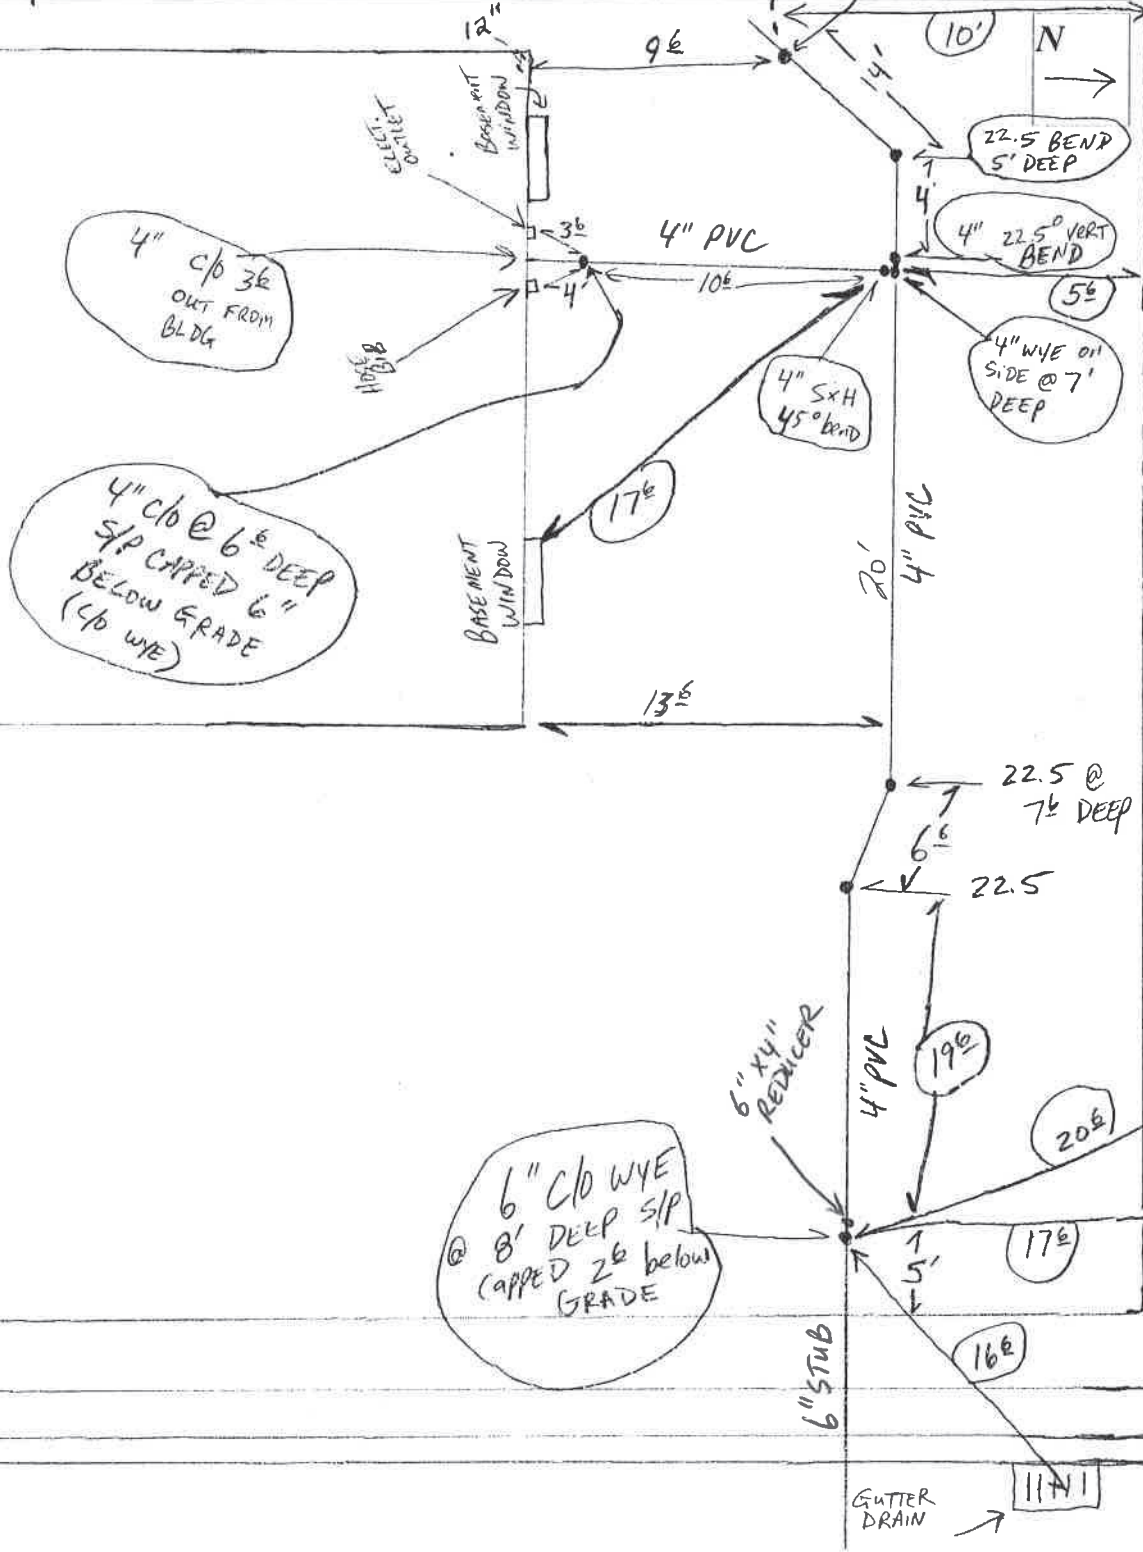 12"
9 6
10'
N
14'
BASEMENT
WINDOW
ELECT.
OUTLET
22.5 BEND
5' DEEP
4'
4" 22.5° VERT
BEND
4" C/O 3 6
OUT FROM
BLDG
3 6
4" PVC
10 6
4'
5 6
HOSE
BIB
4" SxH
45° bend
4" WYE ON
SIDE @ 7'
DEEP
4" C/O @ 6 6 DEEP
S/P CAPPED 6"
BELOW GRADE
(C/O WYE)
17 6
BASEMENT
WINDOW
20'
4" PVC
13 6
22.5 @
7 6 DEEP
6 6
22.5
6" x 4"
REDUCER
4" PVC
19 6
20 6
6" C/O WYE
@ 8' DEEP S/P
CAPPED 2 6 below
GRADE
17 6
5'
16 6
6" STUB
GUTTER
DRAIN